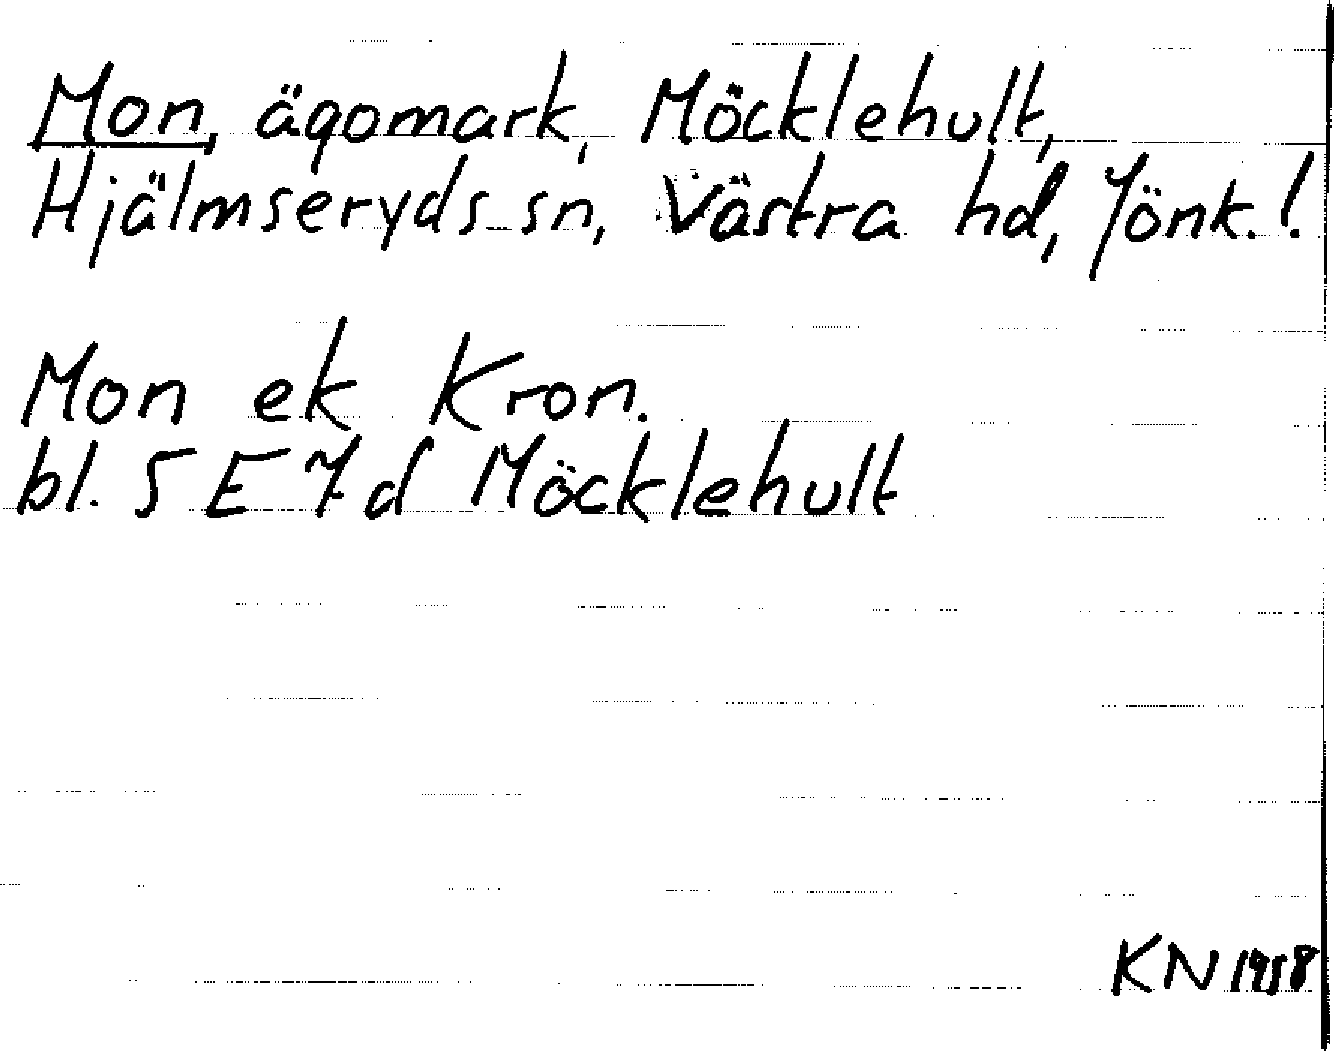 Mon, ägomark, Möcklehult,
Hjälmseryds sn, Västra hd, Jönk. l.
Mon ek Kron.
bl. 5 E 7 d Möcklehult
KN 1958